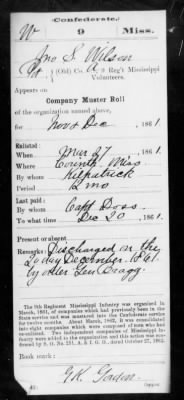 Confederate.
W 9 Miss.
Jno S. Wilson
(Old) Co. A, 9 Reg't Mississippi
Volunteers.
Appears on
Company Muster Roll
of the organization named above,
for Nov & Dec, 1861.
Enlisted:
When Mar 27, 1861.
Where County, Miss
By whom Kilpatrick
Period 12 mo
Last paid:
By whom Capt Doss
To what time Dec 20, 1861.
Present or absent
Remarks: Discharged on the
20 day December 1861.
by order Gen Bragg.
The 9th Regiment Mississippi Infantry was organized in
March, 1861, of companies which had previously been in the
State service and was soon mustered into the Confederate service
for twelve months. About March, 1862, it was consolidated
into eight companies which were composed of men who had
re-enlisted. Two independent companies of Mississippi In-
fantry were added to the organization and this action was con-
firmed by S. O. No. 251, A. & I. G. O., dated October 27, 1862.
Book mark:
Copyist.